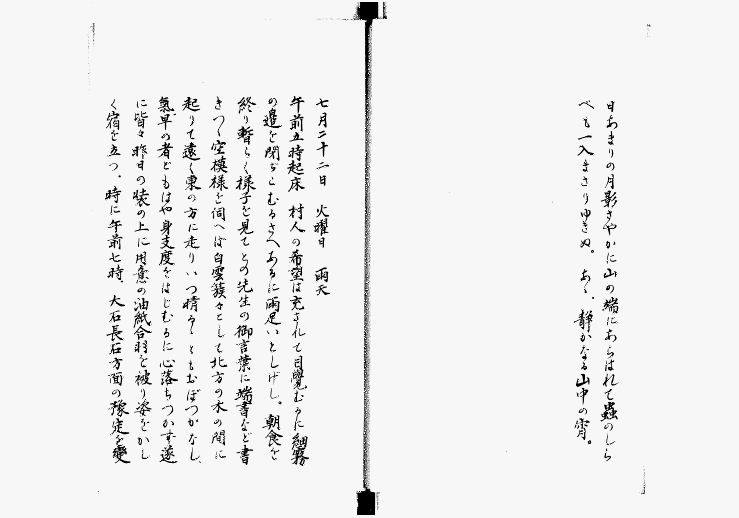 日あまりの月影さやかに山の端にあらはれて蟲のしら
べも一入まさりゆきぬ。あゝ、静かなる山中の宵。
七月二十二日　火曜日　雨天
午前五時起床　村人の希望は充されて目覺むるに細霧
の邉を閉ぢこむるさへあるに雨足いとしげし。朝食を
終り暫らく様子を見てとの先生の御言葉に端書など書
きつゝ空模様を伺へば白雲簇々として北方の木の間に
起りて遠く東の方に走りいつ晴るゝともおぼつかなし、
氣早の者どもはや身支度をはじむるに心落ちつかず遂
に皆々昨日の装の上に用意の油紙合羽を被り姿をかし
く宿を立つ、時に午前七時、大石長石方面の豫定を變